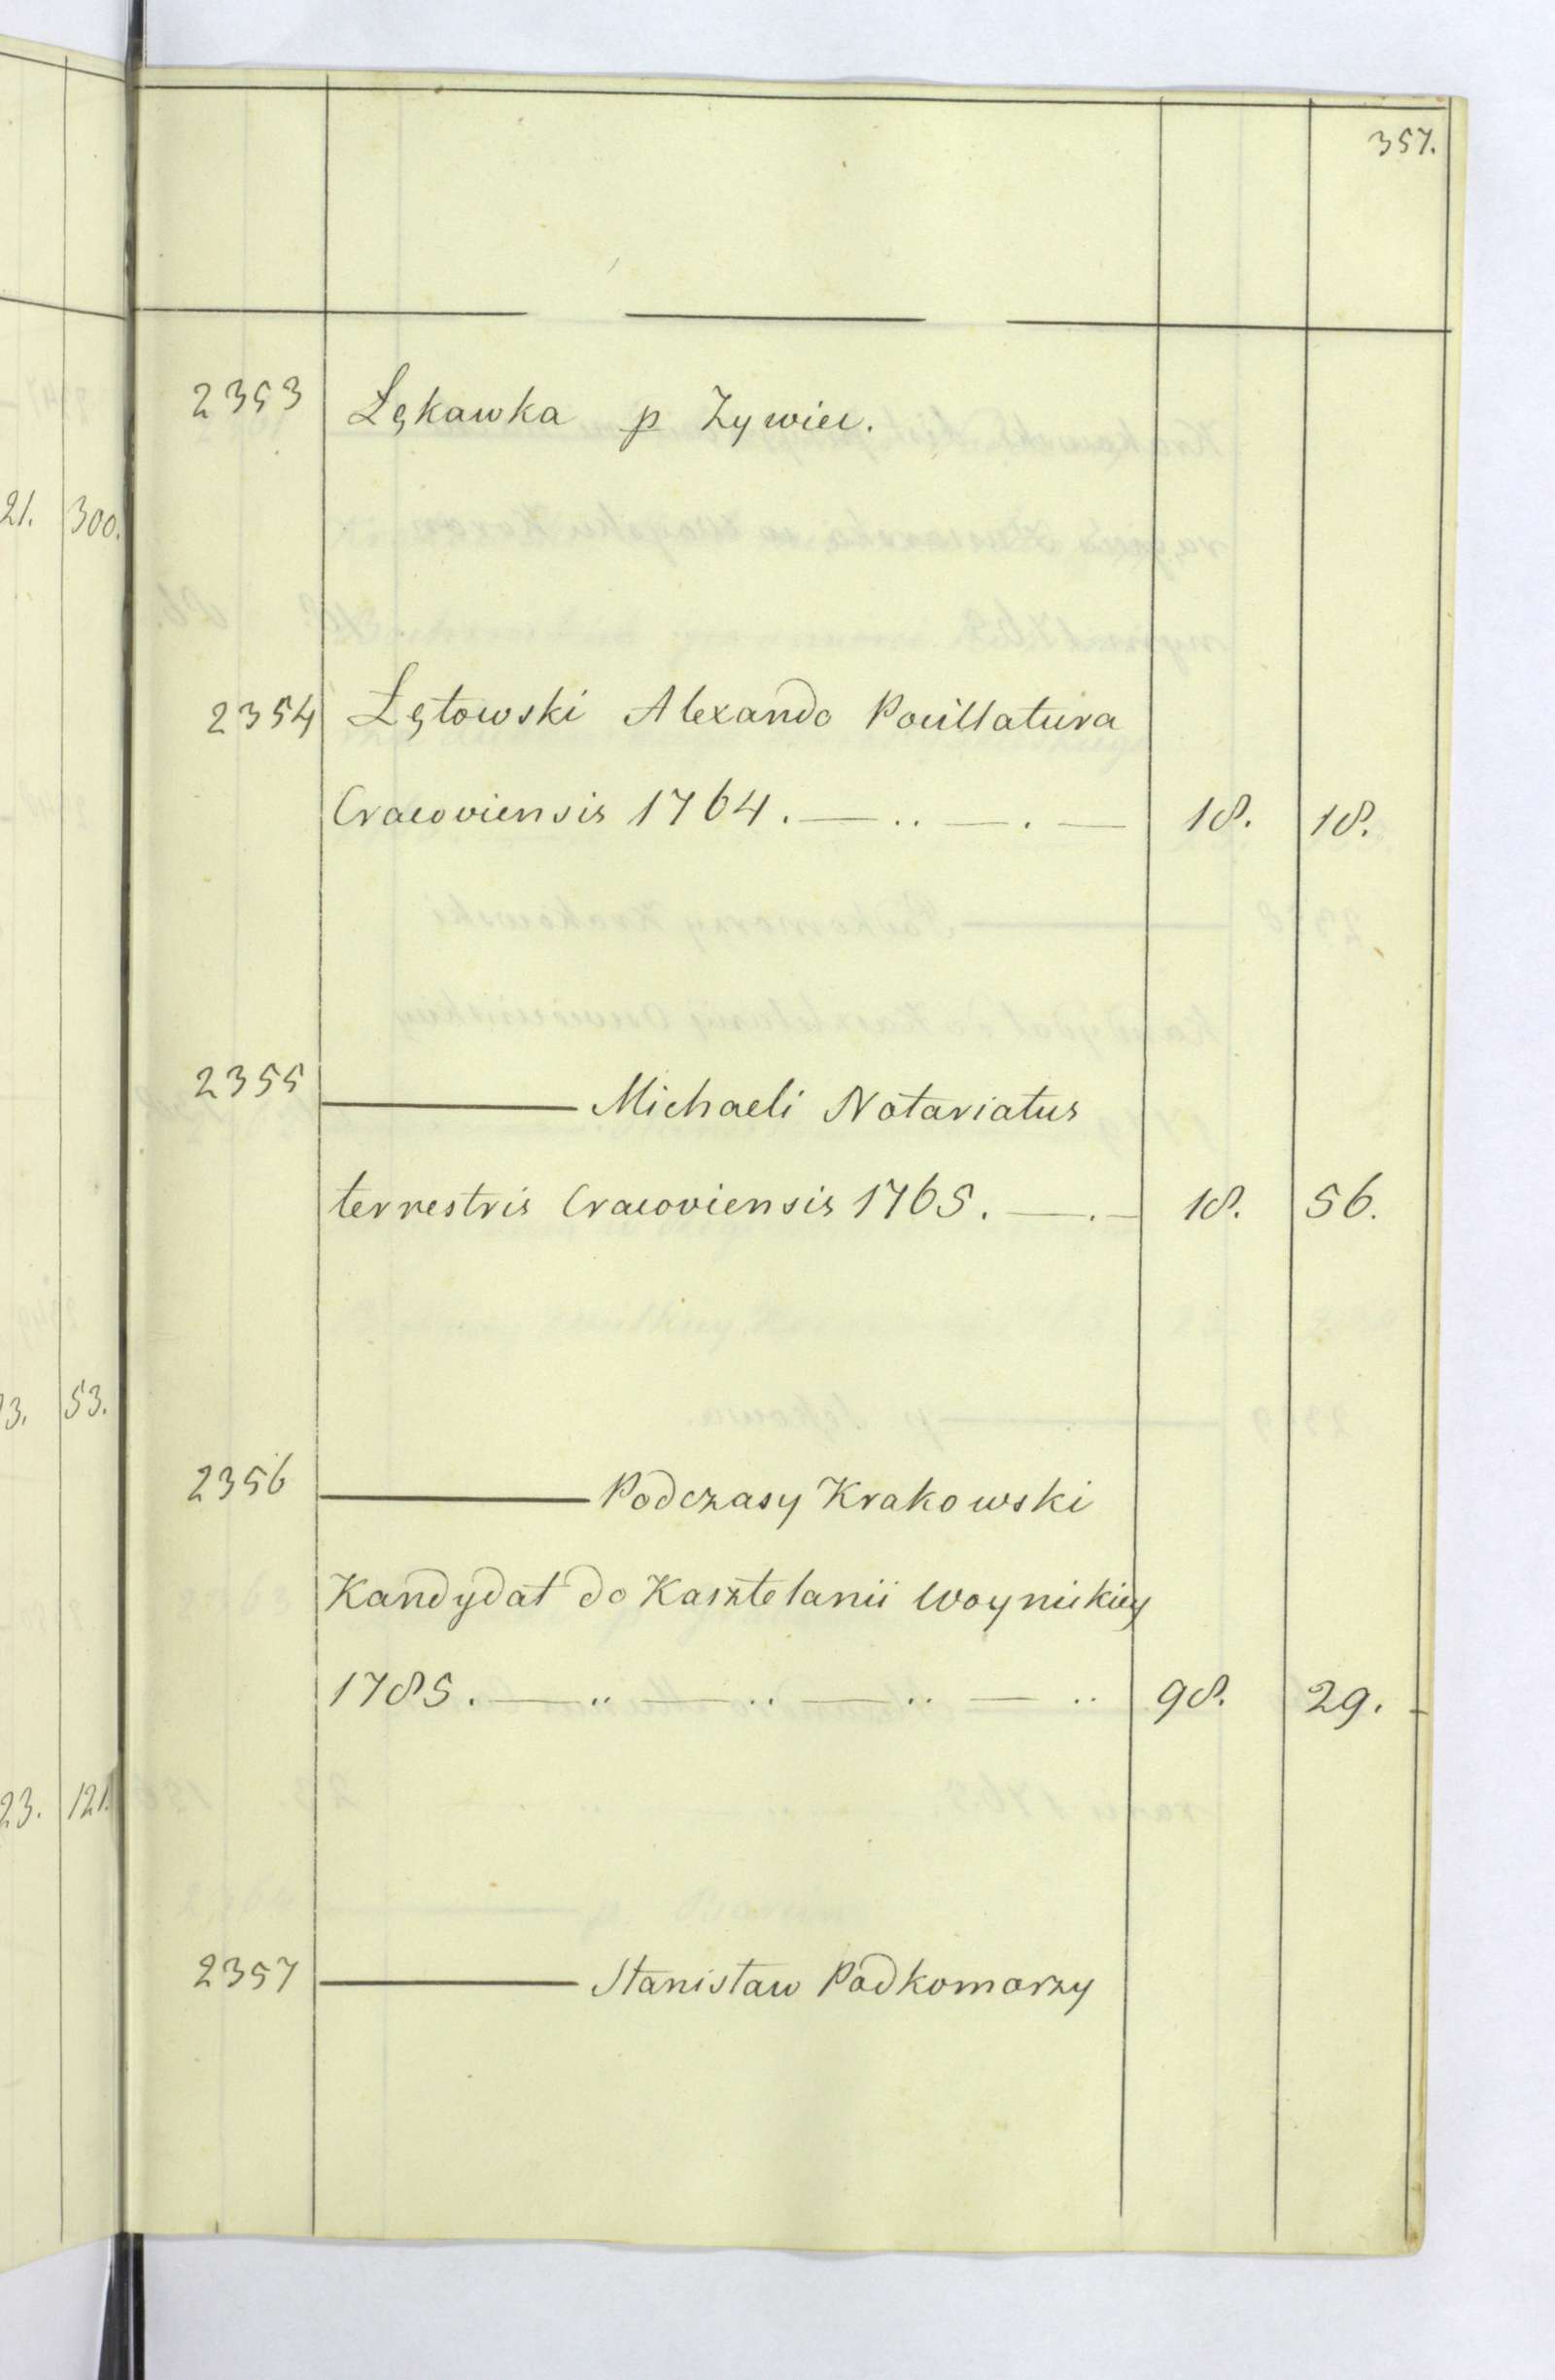 357.
2353 Łękawka p Zywiec.
21. 300.
2354 Łętowski Alexandro Pocillatura
Cracoviensis 1764. — .. — . — 18. 18.
2355 ——— Michaeli Notariatus
terrestris Cracoviensis 1765. — . — 18. 56.
3. 53.
2356 ——— Podczasy Krakowski
Kandydat do Kasztelanii Woynickiey
1785. — .. — .. — .. — .. 98. 29.
23. 121.
2357 ——— Stanisław Podkomorzy